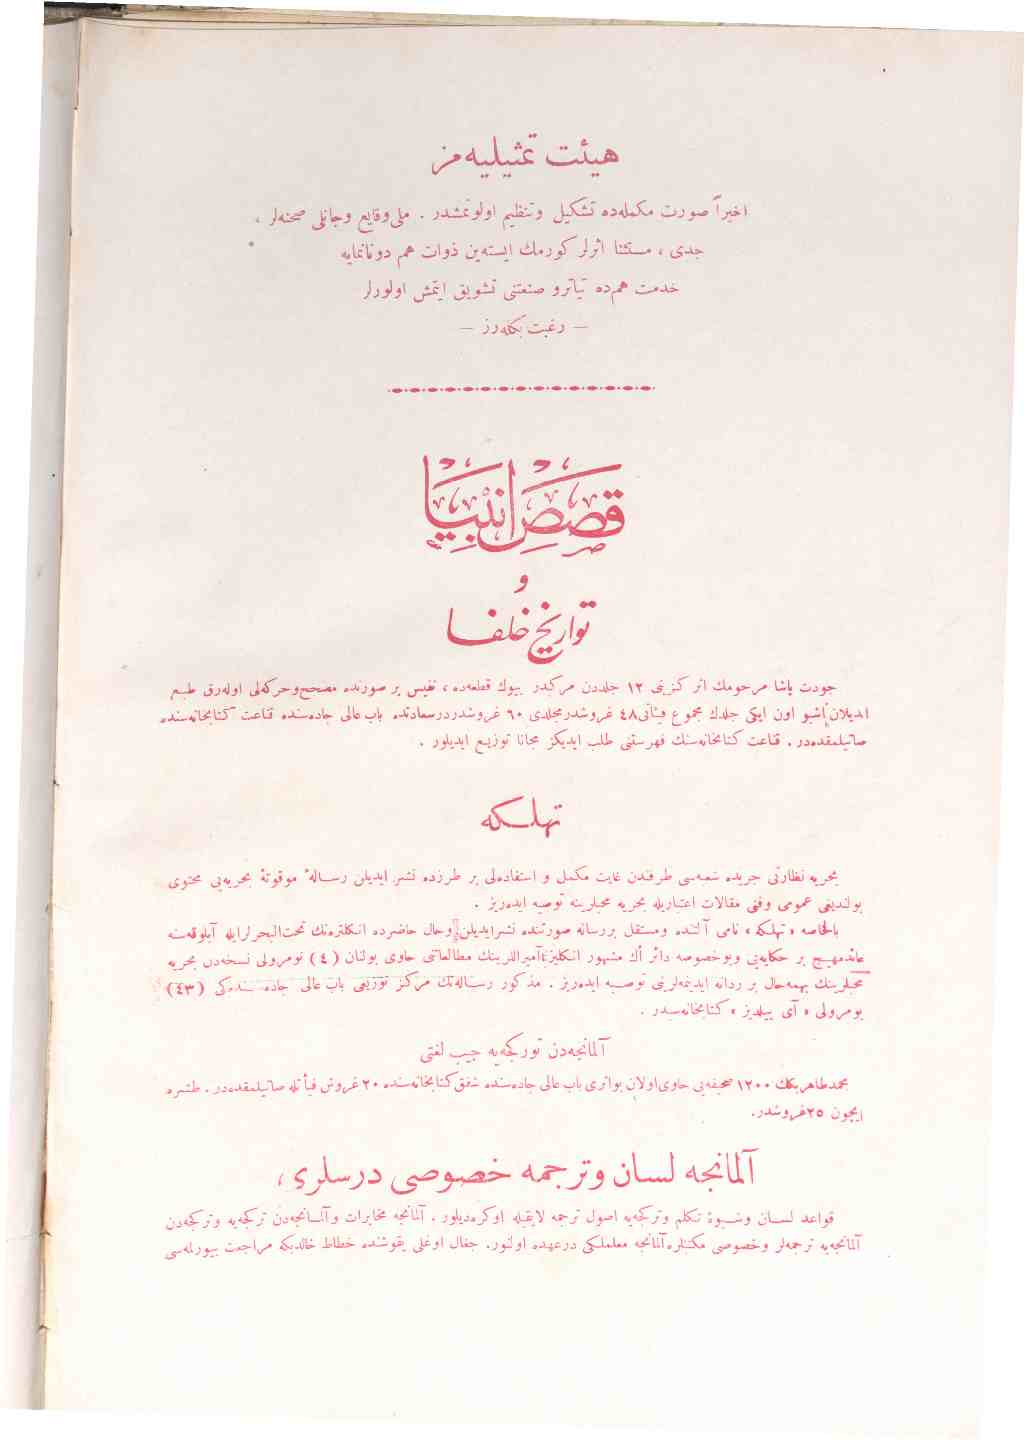 هیئت تمثیلیه‌مز
اخیراً صورت مکمله‌ده تشکیل وتنظیم اولونمشدر . ملی وقایع وجانلی صحنه‌لر ،
جدی ، مستثنا اثرلر کورمك ایسته‌ین ذوات هم دونانمایه
خدمت هم‌ده تیاترو صنعتنی تشویق ایتمش اولورلر
— رغبت بکله‌رز —
قصص انبیا
و
تواریخ خلفا
جودت پاشا مرحومك اثر کزینی ١٢ جلددن مرکبدر بیوك قطعه‌ده ، نفیس بر صورتده مصحح‌وحرکه‌لی اوله‌رق طبع
ایدیلان اشبو اون ایکی جلدك مجموع فیئاتی ٤٨ غروشدر مجلدی ٦٠ غروشدر درسعادتده باب عالی جاده‌سنده قناعت کتابخانه‌سنده
صاتیلمقده‌در . قناعت کتابخانه‌سنك فهرستنی طلب ایدیکز مجانا توزیع ایدیلور .
تهلـکه
بحریه نظارتی جریده شعبه‌سی طرفندن غایت مکمل و استفاده‌لی بر طرزده نشر ایدیلن رسـالهٔ موقوتهٔ بحریه‌یی محتوی
بولندیغی عمومی وفنی مقالات اعتباریله بحریه محبلرینه توصیه ایده‌ریز .
بالخاصه « تهلکه » نامی آلتنده ومستقل بر رساله صورتنده نشر ایدیلن وحال حاضرده انکلتره‌نك تحت‌البحرلر ایله آبلوقه‌سنه
عائد مهیـج بر حکایه‌یی وبوخصوصه دائر اك مشهور انکلیز آمیراللرینك مطالعاتنی حاوی بولنان ( ٤ ) نومرولی نسخه‌دن بحریه
محبلرینك بهمه‌حال بر ردانه ایدینمه‌لرینی توصـیه ایده‌ریز . مذکور رسـاله‌نك مرکز توزیعی باب عالی جاده سـنده‌کی ( ٤٣ )
نومرولی « آی ییلدیز » کتابخانه‌سیدر .
آلمانجه‌دن تورکجه‌یه جیب لغتی
محمدطاهر بکك ١٢٠٠ صحیفه‌یی حاوی اولان بواثری باب عالی جاده‌سنده شفق کتابخانه‌سنده ٢٠ غروش فیأتله صاتیلمقده‌در . طشره
ایچون ٢٥ غروشدر.
آلمانجه لسان وترجمه خصوصی درسلری ،
قواعد لسـان وشـیوهٔ تـکلم وترکجه‌یه اصول ترجمه لایقیله اوکره‌دیلور . آلمانجه مخابرات وآلمـانجه‌دن ترکجه‌یه وترکجه‌دن
آلمانجه‌یه ترجمه‌لر وخصوصی مکتبلره آلمانجه معلملکی درعهده اولنور. جغال اوغلی یقوشنده خطاط خالدبکه مراجعت بیورلمه‌سی